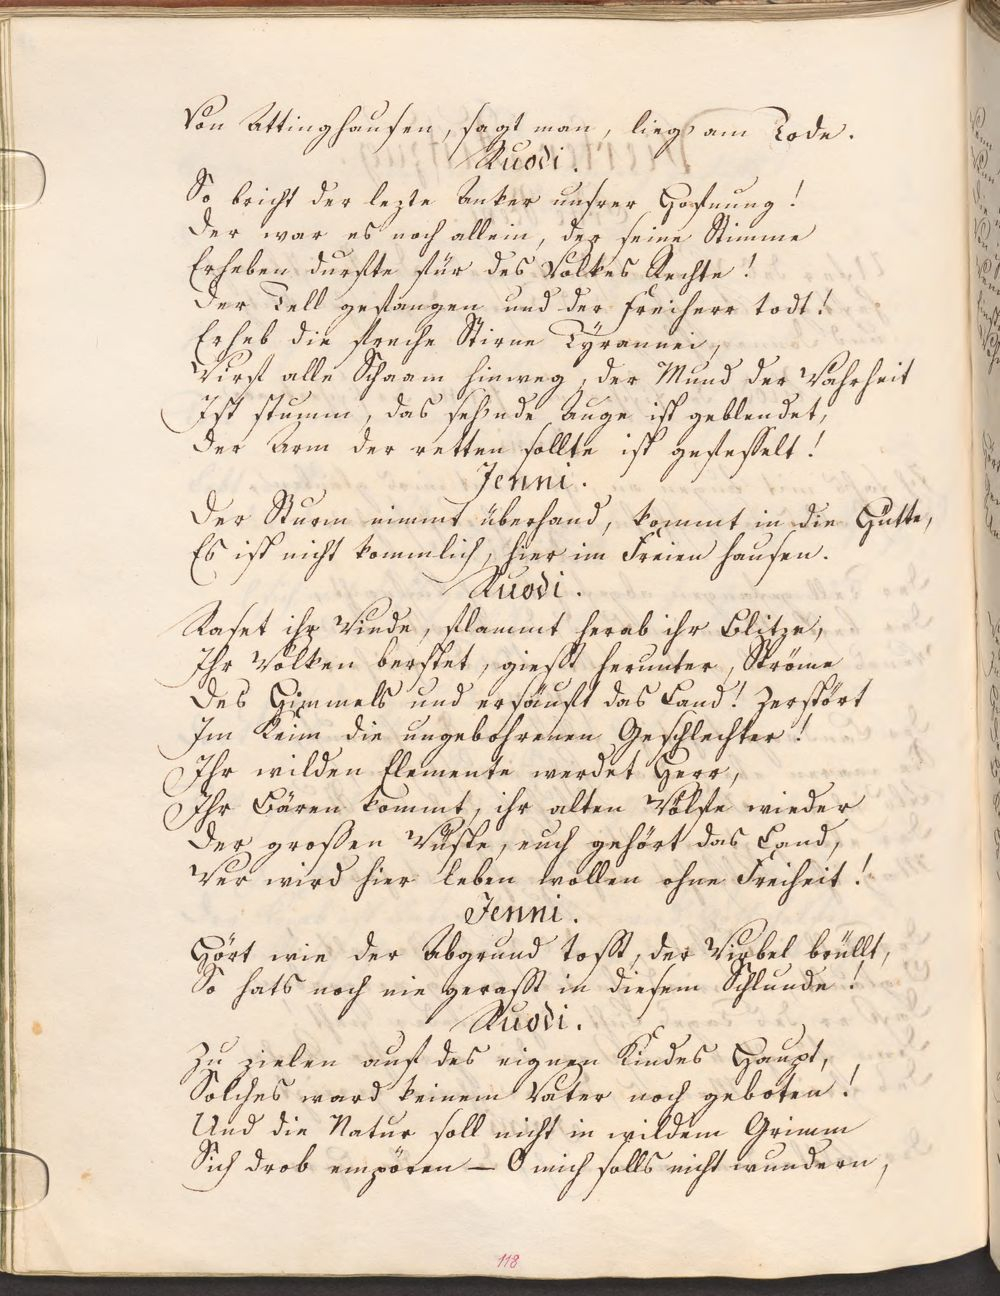 Von Attinghausen, sagt man, lieg' am Tode.
Ruodi.
So bricht der lezte Anker unsrer Hofnung!
Der war es noch allein, der seine Stimme
Erheben durfte für des Volkes Rechte!
Der Tell gefangen und der Freiherr todt!
Erheb die freche Stirne Tyrannei,
Wirf alle Schaam hinweg, der Mund der Wahrheit
Ist stumm, das seh'nde Auge ist geblendet,
Der Arm der retten sollte ist gefesselt!
Jenni.
Der Sturm nimmt überhand, kommt in die Hütte,
Es ist nicht kommlich, hier im Freien hausen.
Ruodi.
Raset ihr Winde, flammt herab ihr Blitze,
Ihr Wolken berstet, giesst herunter, Ströme
Des Himmels und ersäuft das Land! Zerstört
Im Keim die ungebohrenen Geschlechter!
Ihr wilden Elemente werdet Herr,
Ihr Bären kommt, ihr alten Wölfe wieder
Der grossen Wüste, euch gehört das Land,
Wer wird hier leben wollen ohne Freiheit!
Jenni.
Hört wie der Abgrund tosst, der Wirbel brüllt,
So hats noch nie gerasst in diesem Schlunde!
Ruodi.
Zu zielen auf des eignen Kindes Haupt,
Solches ward keinem Vater noch geboten!
Und die Natur soll nicht in wildem Grimm
Sich drob empören — O mich solls nicht wundern,
118